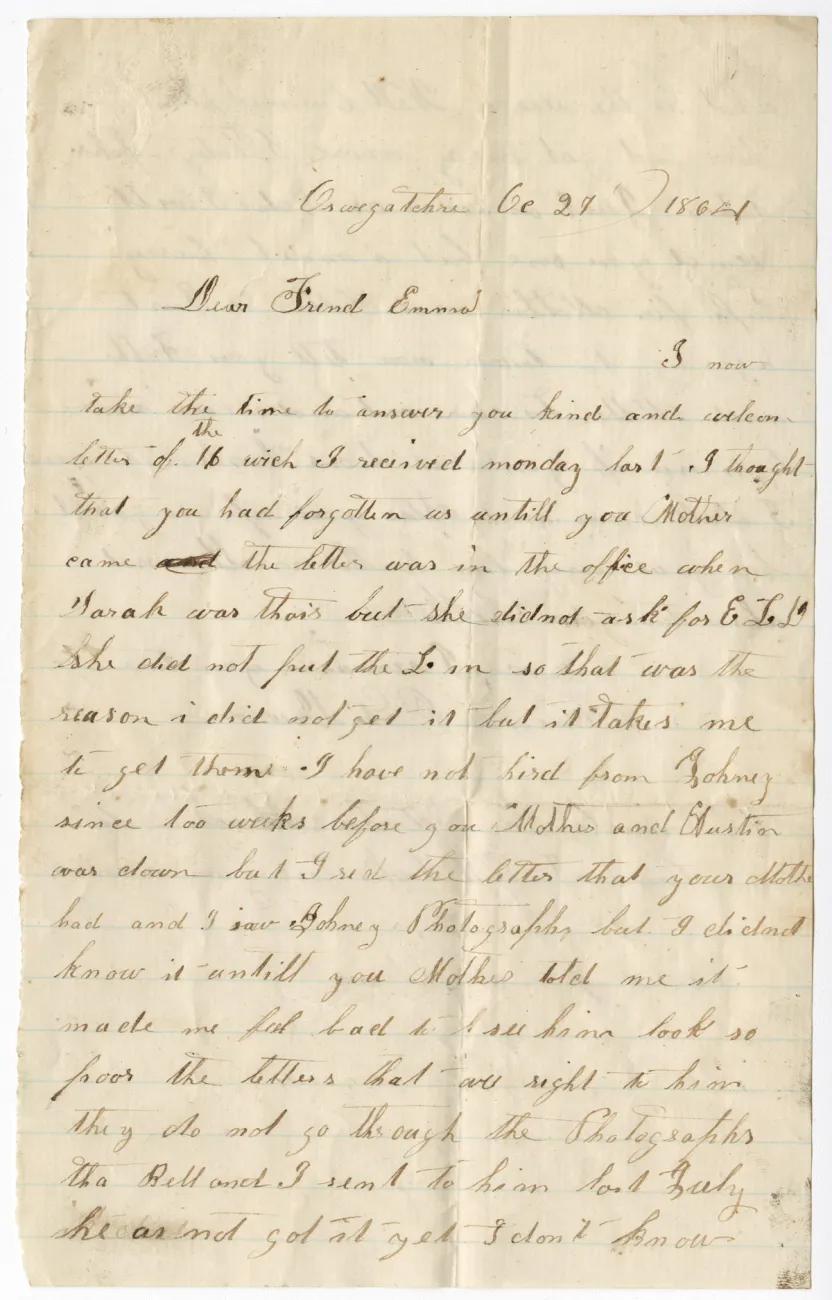 Oswegatchie Oc 27 1864
Dear Frend Emma
I now
take the time to answer you kind and welcom
letter of the 16 wich I received monday last I thought
that you had forgotten us untill you Mother
came the letter was in the office when
Sarah was thair but she didnot ask for E L D
She did not put the L in so that was the
reason i did not get it but it takes me
to get them I have not hird from Johney
since too weeks before you Mother and Austin
was down but I red the letter that your Mothe
had and I saw Johney Photographs but I didnot
know it untill you Mother told me it
made me feel bad to see him look so
poor the letters that we right to him
they do not go through the Photographs
tha Rell and I sent to him last July
he as not got it yet I don't know